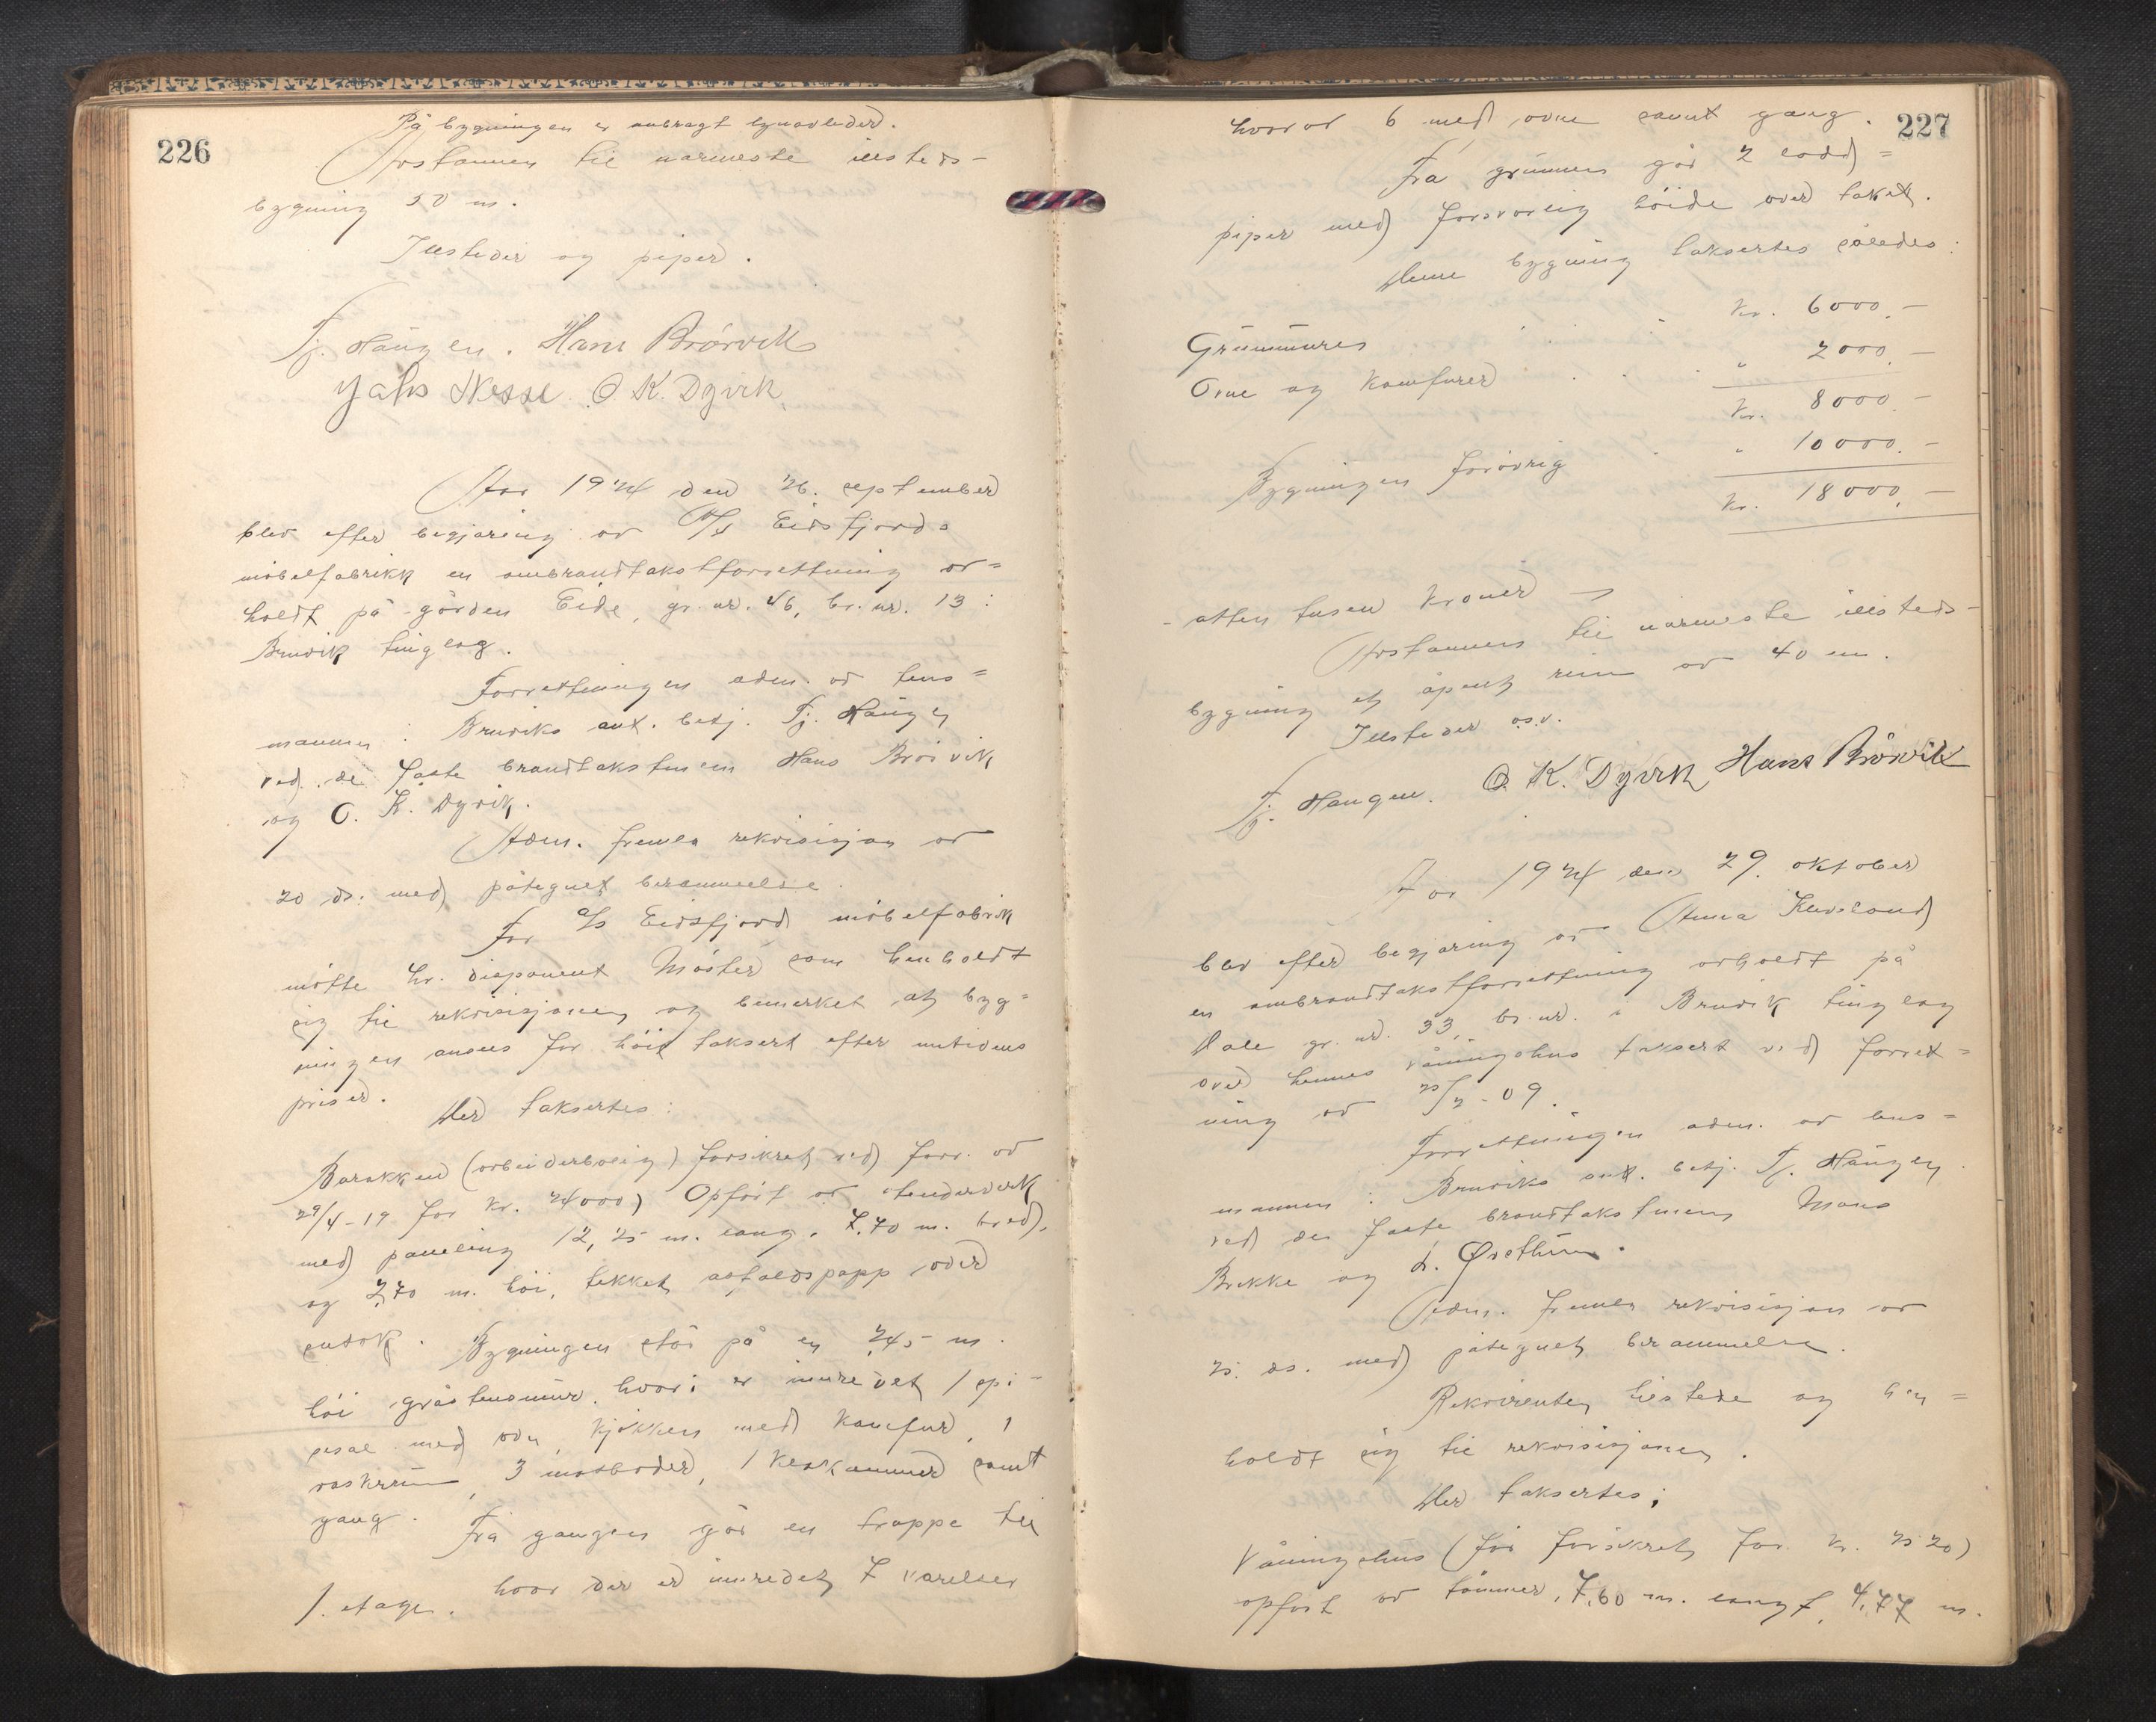 226
På bygningen er anbragt lynavleder.
Avstannen til nærmeste illsteds-
bygning 50 m.
Illsteder og piper.
Tj. Haugen. Hans Brørvik
Jahs Nesse O. K. Dyvik
År 1924 den 26. september
blev efter begjæring av A/S Eidsfjords
möbelfabrikk en ombrandtakstforretning av=
holdt på gården Eide, gr. nr. 46, br. nr. 13 i
Bruvik tinglag.
Forretningen adm. av lens=
mannen i Bruviks aut. betj. Tj. Haugen
ved de faste brandtakstmenn Hans Brörvik
og O. K. Dyvik.
Adm. fremla rekvisisjon av
20 ds. med påtegnet berammelse.
For a/s Eidsfjord möbelfabrik
mötte hr. disponent Möster som henholdt
sig til rekvisisjonen og bemerket at byg=
ningen ansees for höit taksert efter nutidens
priser.
Der taksertes:
Barakken (arbeiderbolig) forsikret ved forr. av
29/4-19 for kr. 24000) Opfört av stenderverk
med paneling 12,25 m. lang, 7,70 m. bred,
og 2,70 m. höi, tekket asfaltspapp over
sutak. Bygningen står på en 2,45 m.
höi gråstensmur, hvori er innredet 1 spi-
sesal med ovn, kjökken med komfur, 1
vaskerum, 3 matboder, 1 kottkammer samt
gang. Fra gangen går en trappe til
1. etage. hvor der er innredet 7 værelser
227
hvorav 6 med ovne samt gang.
Fra grunnen går 2 lodd=
piper med forsvarlig höide over taket.
Denne bygning taksertes således:
Grunnmuren . . . kr. 6000.-
Ovne og komfurer . . . " 2000.-
kr. 8000.-
Bygningen forövrig . " 10000.-
kr. 18000.-
- atten tusen kroner -
Avstannen til nærmeste illsteds-
bygning et åpent rum av 40 m.
Illsteder o.s.v.
Tj. Haugen. O. K. Dyvik Hans Brörvik
År 1924 den 29. oktober
blev efter begjæring av Anna
en ombrandtakstforretning avholdt på
Dale gr. nr. 33, br. nr. i Bruvik tinglag
over hennes våningshus taksert ved forret=
ning av 25/2-09.
Forretningen adm. av lens=
mannen i Bruviks aut. betj. Tj. Haugen
ved de faste brandtakstmenn Mons
Brekke og
Adm. fremla rekvisisjon av
25. ds. med påtegnet berammelse.
Rekvirenten tilstede og hen=
holdt sig til rekvisisjonen.
Der taksertes:
Våningshus (för forsikret for kr. 2520)
opfört av tömmer, 7,60 m. langt, 4,77 m.